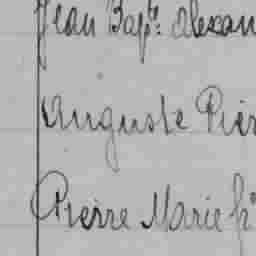 Jean Bapte. alexan
Auguste Pier
Pierre Marie fr